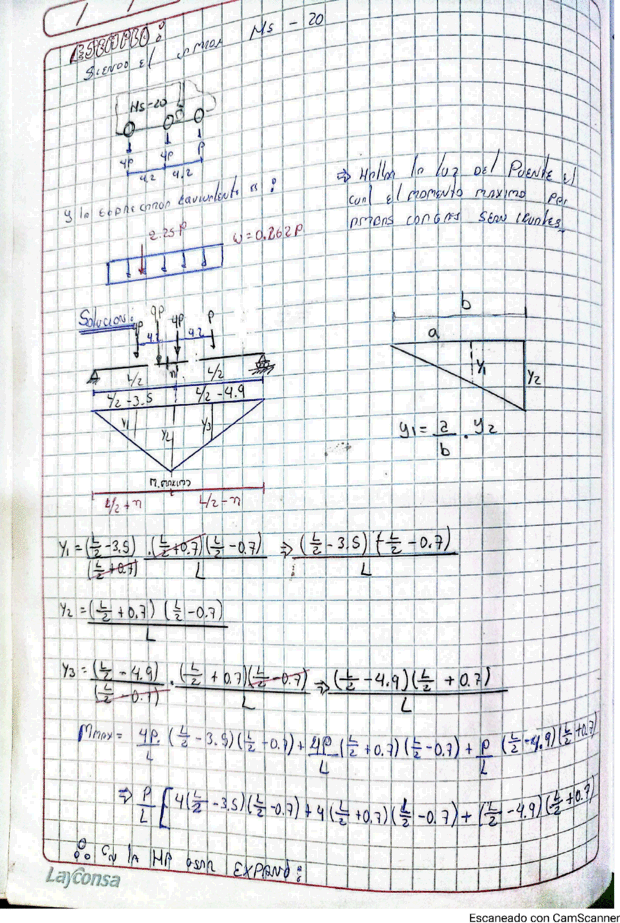 SIENDO EL CAMION Hs - 20
HS-20
4P 4P P
4.2 4.2
Y LA SOBRECARGA EQUIVALENTE ES:
2.25P
ω = 0.262P
⇒ HALLAR LA LUZ DEL PUENTE EL
CUAL EL MOMENTO MAXIMO POR
AMBAS CARGAS SEAN IGUALES.
SOLUCION:
4P 9P 4P P
4.2 4.2
n
L/2 L/2
L/2 - 3.5 L/2 - 4.9
y1 y2 y3
M. MAXIMO
L/2 + n L/2 - n
b
a
y1 y2
y1 = a/b . y2
Y1 = (L/2 - 3.5)/(L/2 + 0.7) . (L/2 + 0.7)(L/2 - 0.7)/L ⇒ (L/2 - 3.5)(L/2 - 0.7)/L
Y2 = (L/2 + 0.7)(L/2 - 0.7)/L
Y3 = (L/2 - 4.9)/(L/2 - 0.7) . (L/2 + 0.7)(L/2 - 0.7)/L ⇒ (L/2 - 4.9)(L/2 + 0.7)/L
Mmax = 4P/L (L/2 - 3.5)(L/2 - 0.7) + 4P/L (L/2 + 0.7)(L/2 - 0.7) + P/L (L/2 - 4.9)(L/2 + 0.7)
⇒ P/L [4(L/2 - 3.5)(L/2 - 0.7) + 4(L/2 + 0.7)(L/2 - 0.7) + (L/2 - 4.9)(L/2 + 0.7)
∴ EN LA HP USAR EXPAND:
Layconsa
Escaneado con CamScanner